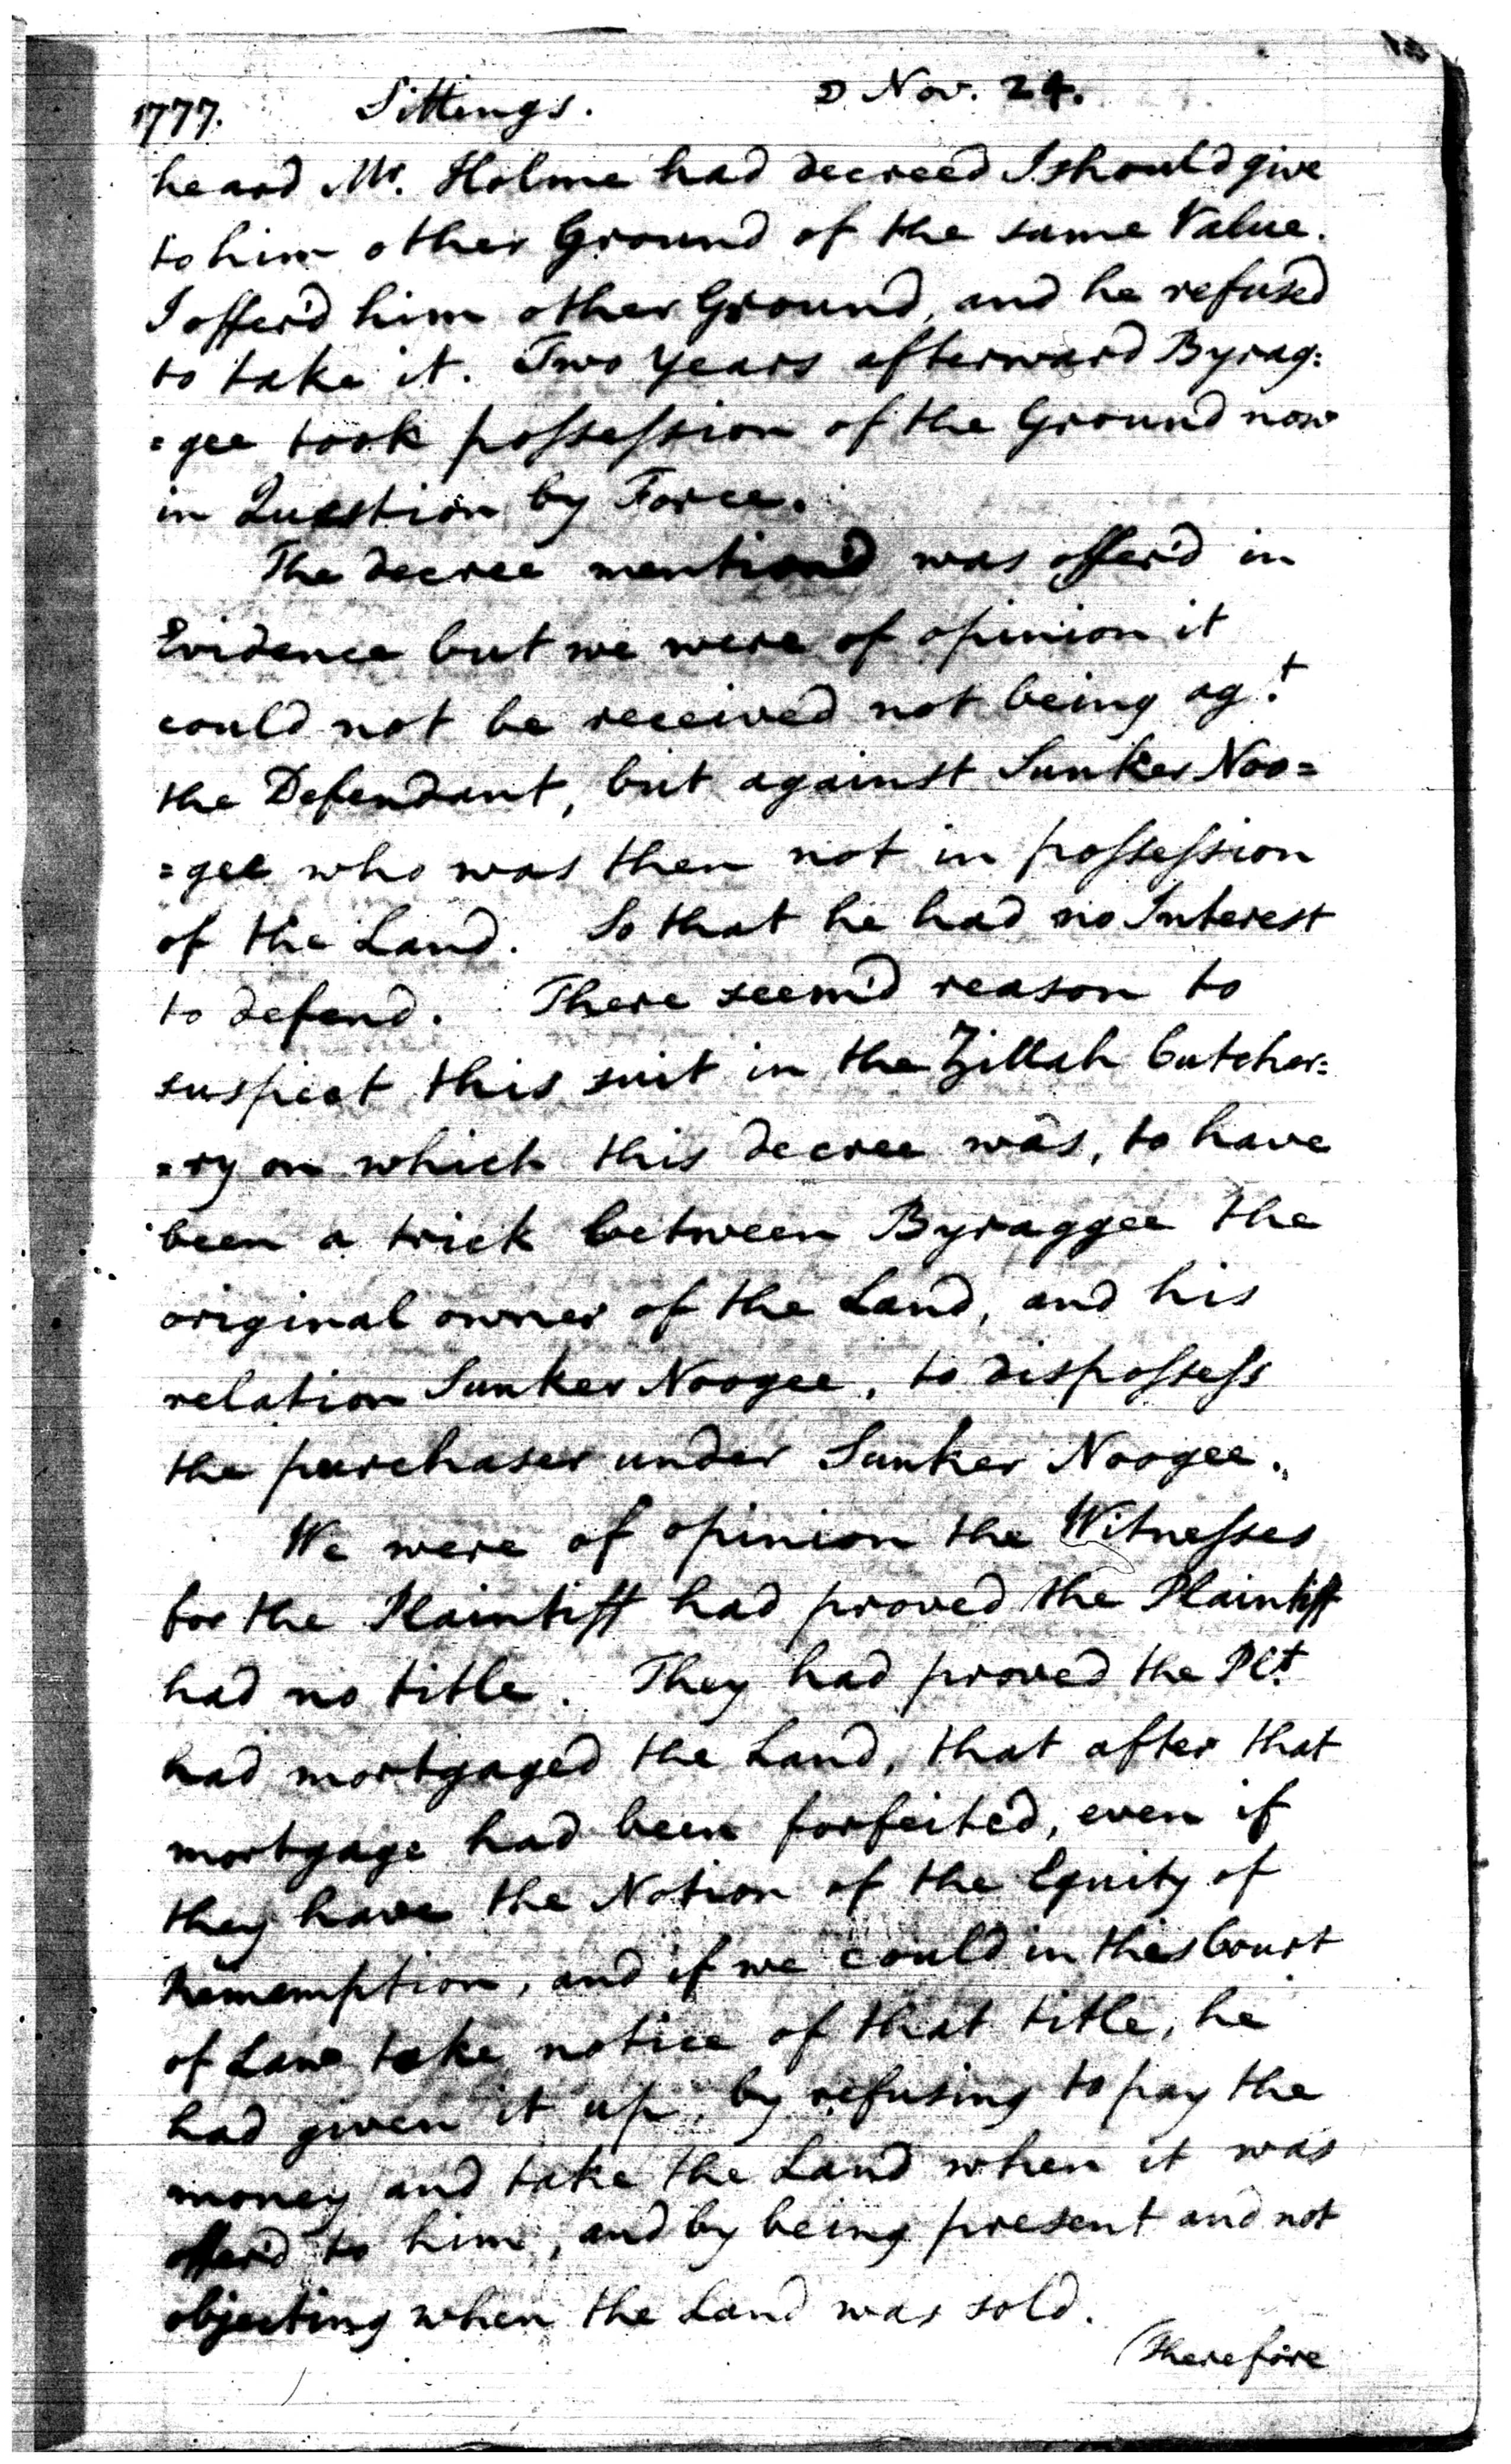 1777. Sittings. ☽ Nov. 24.
heard Mr. Holme had decreed I should give
to him other Ground of the same Value.
I offer'd him other Ground, and he refused
to take it. Two Years afterward Byrag:
=gee took possession of the Ground now
in Question by Force.
The decree mention'd was offer'd in
Evidence but we were of opinion it
could not be received not being agt.
the Defendant, but against Sunker Noo=
=gee who was then not in possession
of the Land. So that he had no Interest
to defend. There seem'd reason to
suspect this suit in the Zillah Cutcher=
=ry on which this decree was, to have
been a trick between Byraggee the
original owner of the Land, and his
relation Sunker Noogee, to dispossess
the purchaser under Sunker Noogee.
We were of opinion the Witnesses
for the Plaintiff had proved the Plaintiff
had no title. They had proved the Plt.
had mortgaged the Land, that after that
mortgage had been forfeited, even if
they have the Notion of the Equity of
, and if we could in this Court
of Law take notice of that title, he
had given it up, by refusing to pay the
money and take the Land when it was
offer'd to him, and by being present and not
objecting when the Land was sold.
Therefore